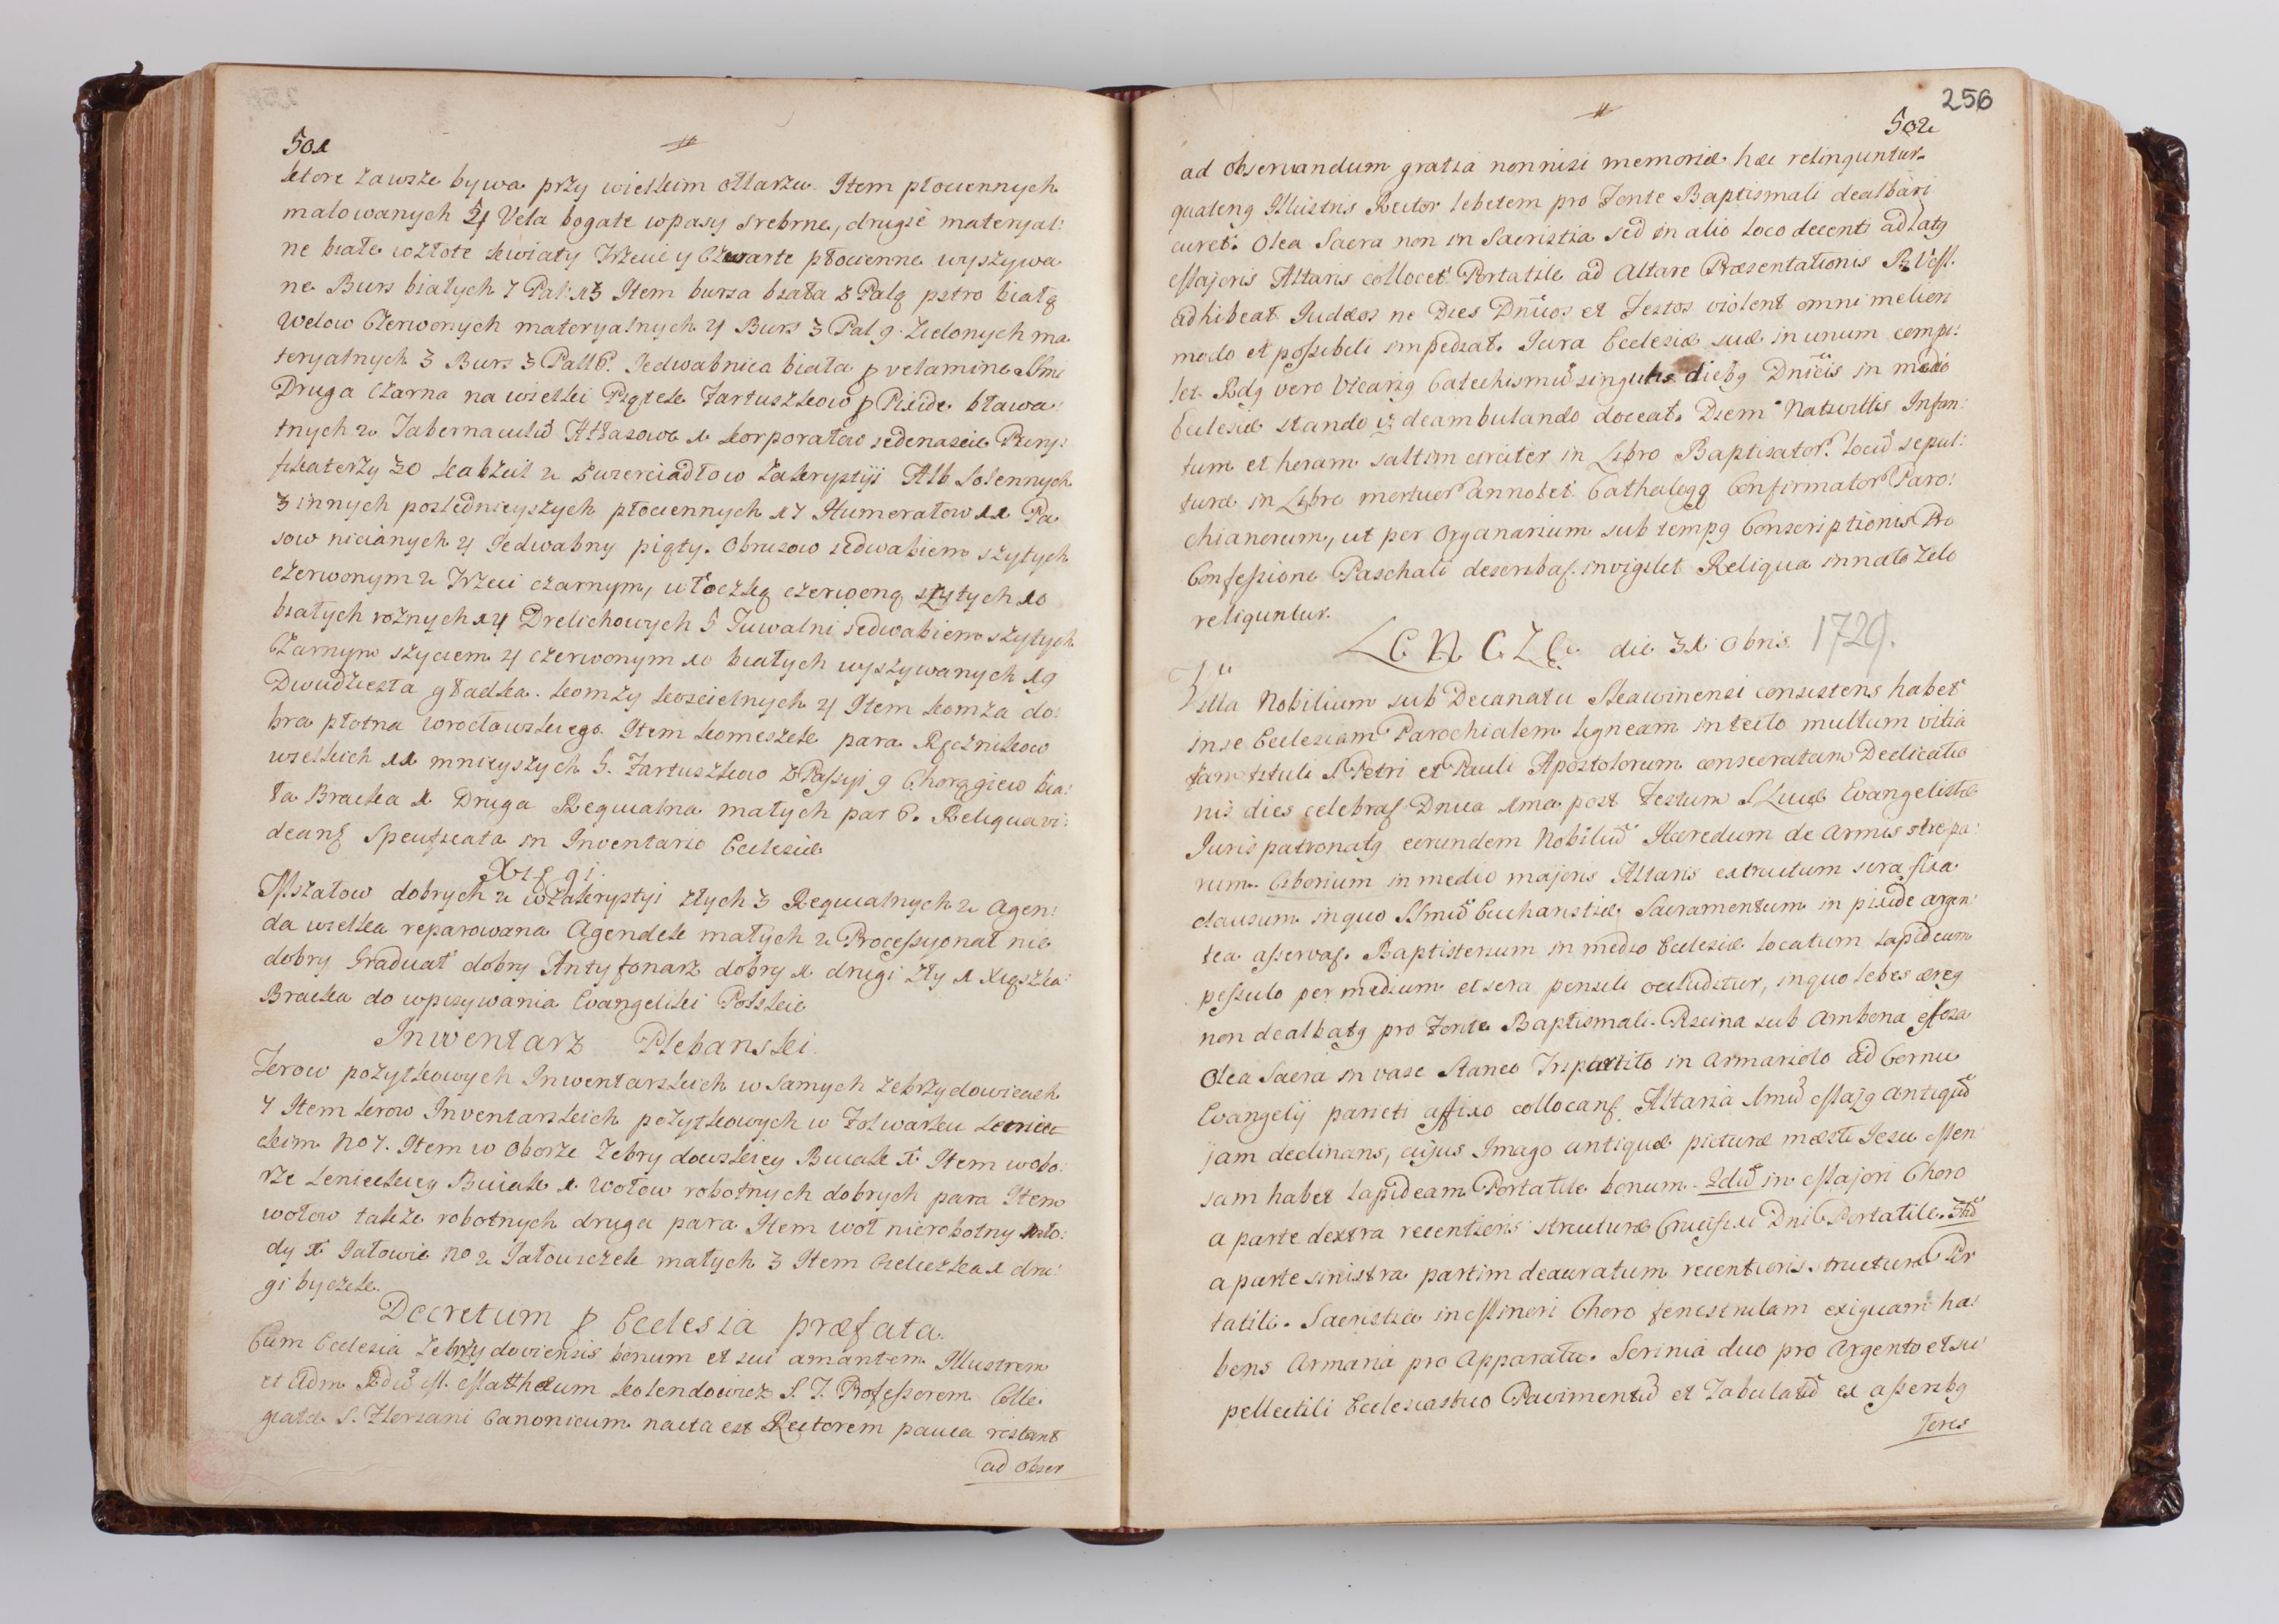 501
ktore zawsze bywa przy wielkim ołtarzu. Item płociennych
malowanych 4 Vela bogate w pasy srebrne, drugie materyal:
ne białe w złote kwiaty Trzecie y Czwarte płocienne wyszywa
ne Burs białych 7 Pal: 13 Item bursa biała z Palą pstro białą
Welow Czerwonych materyalnych 4 Burs 3 Pal 9. Zielonych ma
teryalnych 3 Burs 3 Pall 6. Jedwabnica biała p velamine SSmi
Druga Czarna na wielki Piątek Fartuszkow p Pixide bława:
tnych 2 Tabernaculu Atłasowe 1 korporałow jedenascie Pury:
fikaterzy 30 kabzul 2 zwierciadłow Zakrystiji Alb Solennych
3 innych poslednieyszych płociennych 17 Humerałow 11 Pa
sow nicianych 4 Jedwabny piąty. Obrusow jedwabiem szytych
czerwonym 2 Trzeci czarnym, włoczką czerwoną szytych 10
białych rożnych 14 Drelichowych 5 Tuwalni jedwabiem szytych
Czarnym szyciem 4 czerwonym 10 białych wyszywanych 19
Dwudziesta gładka. komży koscielnych 4 Item komża do:
bra płotna wrocławskiego. Item komeszek para Ręcznikow
wielkich 11 mnieyszych 5. Fartuszkow z Passyi 9 Chorągiew bia:
ła Bracka 1 Druga Requialna małych par 6. Reliqua vi:
deant Specificata in Inventario Ecclesiæ
Xięgi.
Mszałow dobrych 2 w Zakrystyi złych 3 Requialnych 2 Agen:
da wielka reparowana Agendek małych 2 Processyonał nie
dobry Graduał dobry Antyfonarz dobry 1 drugi zły 1 Xiąszka
Bracka do wpisywania Evangeliki Polskie
Inwentarz Plebanski.
Krow pożytkowych Inwentarskich w samych Zebrzydowicach
7 Item krow Inventarskich pożytkowych w Folwarku
No 7. Item w Oborze Zebrydowskiey Buiak 1 Item w obo:
rze Lenieckiey Buiak 1. Wołow robotnych dobrych para Item
wołow także robotnych druga para Item woł nierobotny mło:
dy 1 Jałowic No 2 Jałowiczek małych 3 Item Cieliczka 1 dru:
gi byczek.
Decretum p Ecclesia præfata.
Cum Ecclesia Zebrzydoviensis bonum et sui amantem Illustrem
et Adm Rdu M. Matthæum kolendowicz S. T. Professorem Colle.
giatæ S. Floriani Canonicum nacta est Rectorem pauca restant
ad obser
256
502
ad observandum gratia nonnisi memoriæ hæc relinquntur.
quateng Illustris Rector lebetem pro Fonte Baptismali dealbari
curet. Olea Sacra non in Sacristia sed in alio loco decenti ad latg
Majoris Altaris collocet. Portatile ad Altare Præsentationis
adhibeat. Iudæos ne Dies Dnicos et Festos violent omni meliori
modo et possibili impediat. Iura Ecclesiæ suæ in unum compi:
let. Rdg vero Vicarig Catechismu singulis diebg Dnicis in medio
Ecclesiæ stando deambulando doceat. Diem Nativittis Infan:
tum et horam saltim circiter in Libro Baptisator. locu sepul:
turæ in Libro mortuor annotet. Cathalogg Confirmator Paro:
chianorum, ut per Organarium sub tempg Conscriptionis Pro
Confessione Paschali describat. invigilet Reliqua innato zelo
reliquntur.
LENCZE. die 31 Obris. 1729.
Villa Nobilium sub Decanatu Skawinensi consistens habet
in se Ecclesiam Parochialem ligneam in tecto multum vitia
tam tituli S. Petri et Pauli Apostolorum consecratam Dedicatio
nis dies celebrat Dnica 1ma post Festum S Lucæ Evangelistæ
Iuris patronatg eorundem Nobiliu Hæredum de Armis strepa:
rum. Ciborium in medio majoris Altaris extructum sera fixa
clausum in quo SSmu Eucharistiæ Sacramentum in pixide argen:
tea asservat. Baptisterium in medio Ecclesiæ locatum lapideum
pessulo per medium et sera pensili occluditur, in quo lebes æreg
non dealbatg pro Fonte Baptismali. Piscina sub Ambona effosa
Olea Sacra in vase staneo Tripartito in Armariolo ad Cornu
Evangelij parieti affixo collocant. Altaria 1mu Majg antiquu
jam declinans, cujus Imago antiquæ picturæ mæsti Iesu Men
sam habet lapideam Portatile bonum. 2du in Majori Choro
a parte dextra recentioris structuræ Crucifixi Dni Portatile. 3tiu
a parte sinistra partim deauratum recentioris structuræ Por
tatili. Sacristia in Minori Choro fenestrulam exiguam ha:
bens Armaria pro Apparatu. Scrinia duo pro Argento et su:
pellectili Ecclesiastico Pavimentu et Tabulatu ex asseribg
Fores